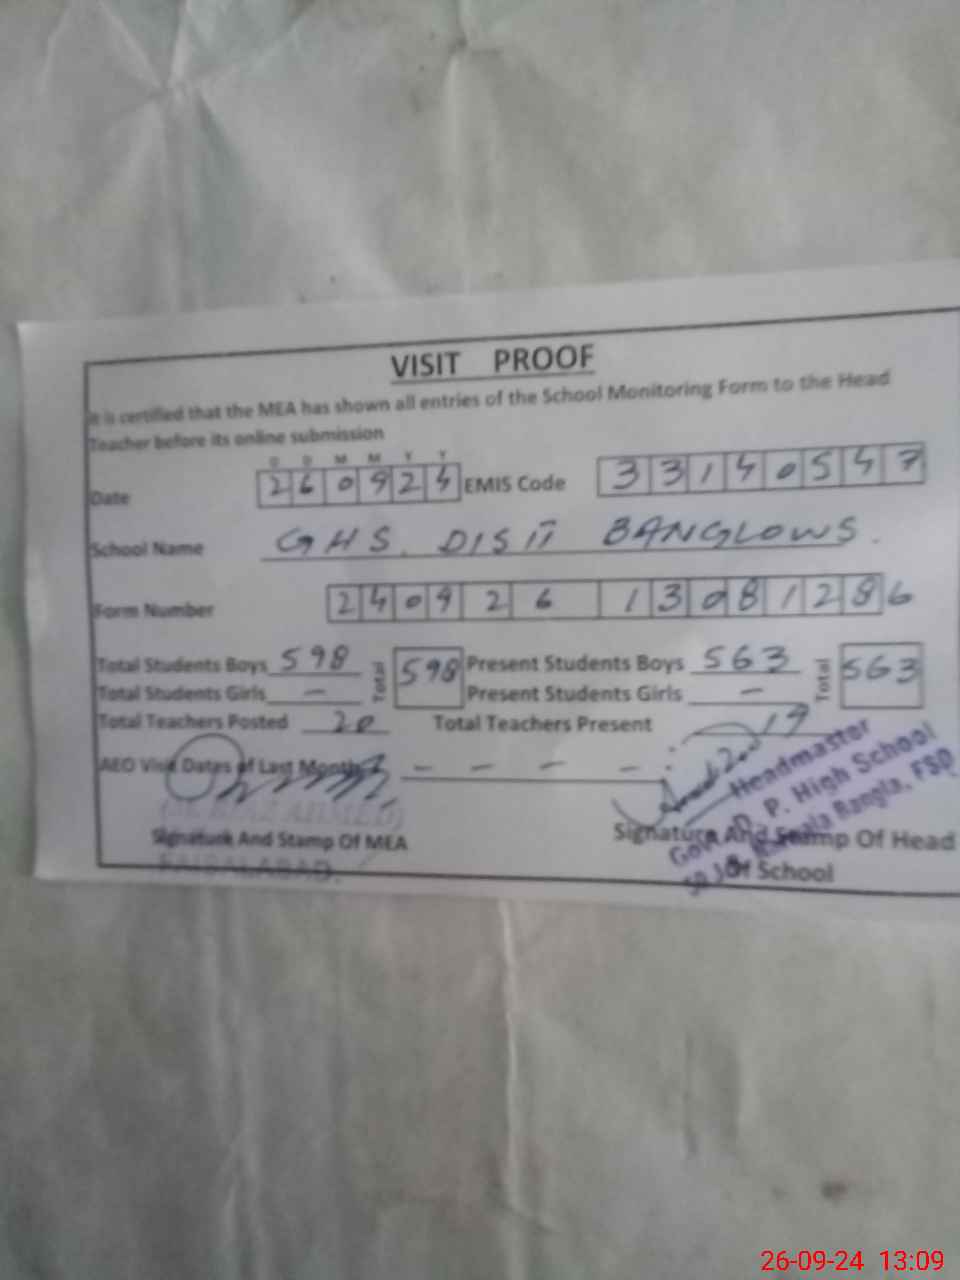 VISIT PROOF
It is certified that the MEA has shown all entries of the School Monitoring Form to the Head
Teacher before its online submission
D D M M Y Y
Date 260924 EMIS Code 33140547
School Name GHS. DISTT BANGLOWS.
Form Number 240926 13081286
Total Students Boys 598 Total 598 Present Students Boys 563 Total 563
Total Students Girls – Present Students Girls –
Total Teachers Posted 20 Total Teachers Present 19
AEO Visit Dates of Last Month – – – –
Headmaster
P. High School
Bangla, FSD
AHMED)
Signature And Stamp Of MEA
Signature And Stamp Of Head
Of School
FAISALABAD.
26-09-24 13:09